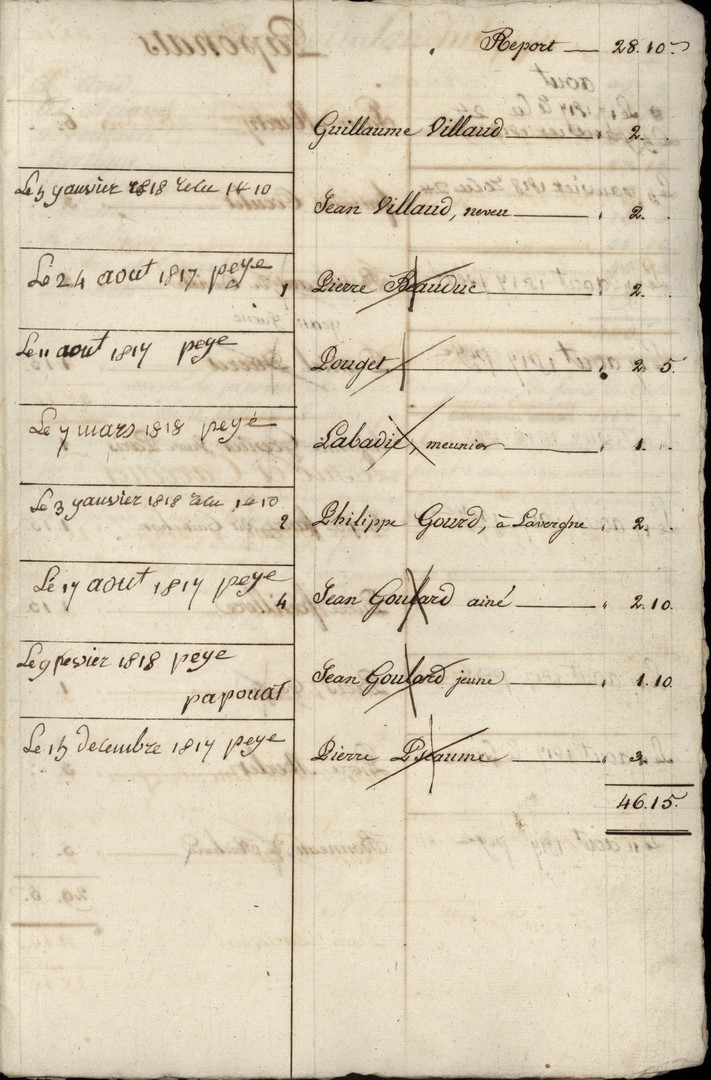 Report — 28.10.
Guillaume Villaud — 2.
Le 5 yanvier 1818 reçu 1# 10
Jean Villaud, neveu — 2.
Le 24 aout 1817 peye 1
Pierre Beauduc — 2.
Le 11 aout 1817 peye
Pouget — 2. 5.
Le 7 mars 1818 peyé
Labadie, meunier — 1.
Le 3 yanvier 1818 reçu 1# 10
2
Philippe Gourd, à Lavergne 2.
Lé 17 aout 1817 peye
4
Jean Goulard ainé — 2.10.
Le 9 fevier 1818 peye
papouat
Jean Goulard jeune — 1.10.
Le 15 decembre 1817 peye
Pierre Pseaume — 3.
46.15.